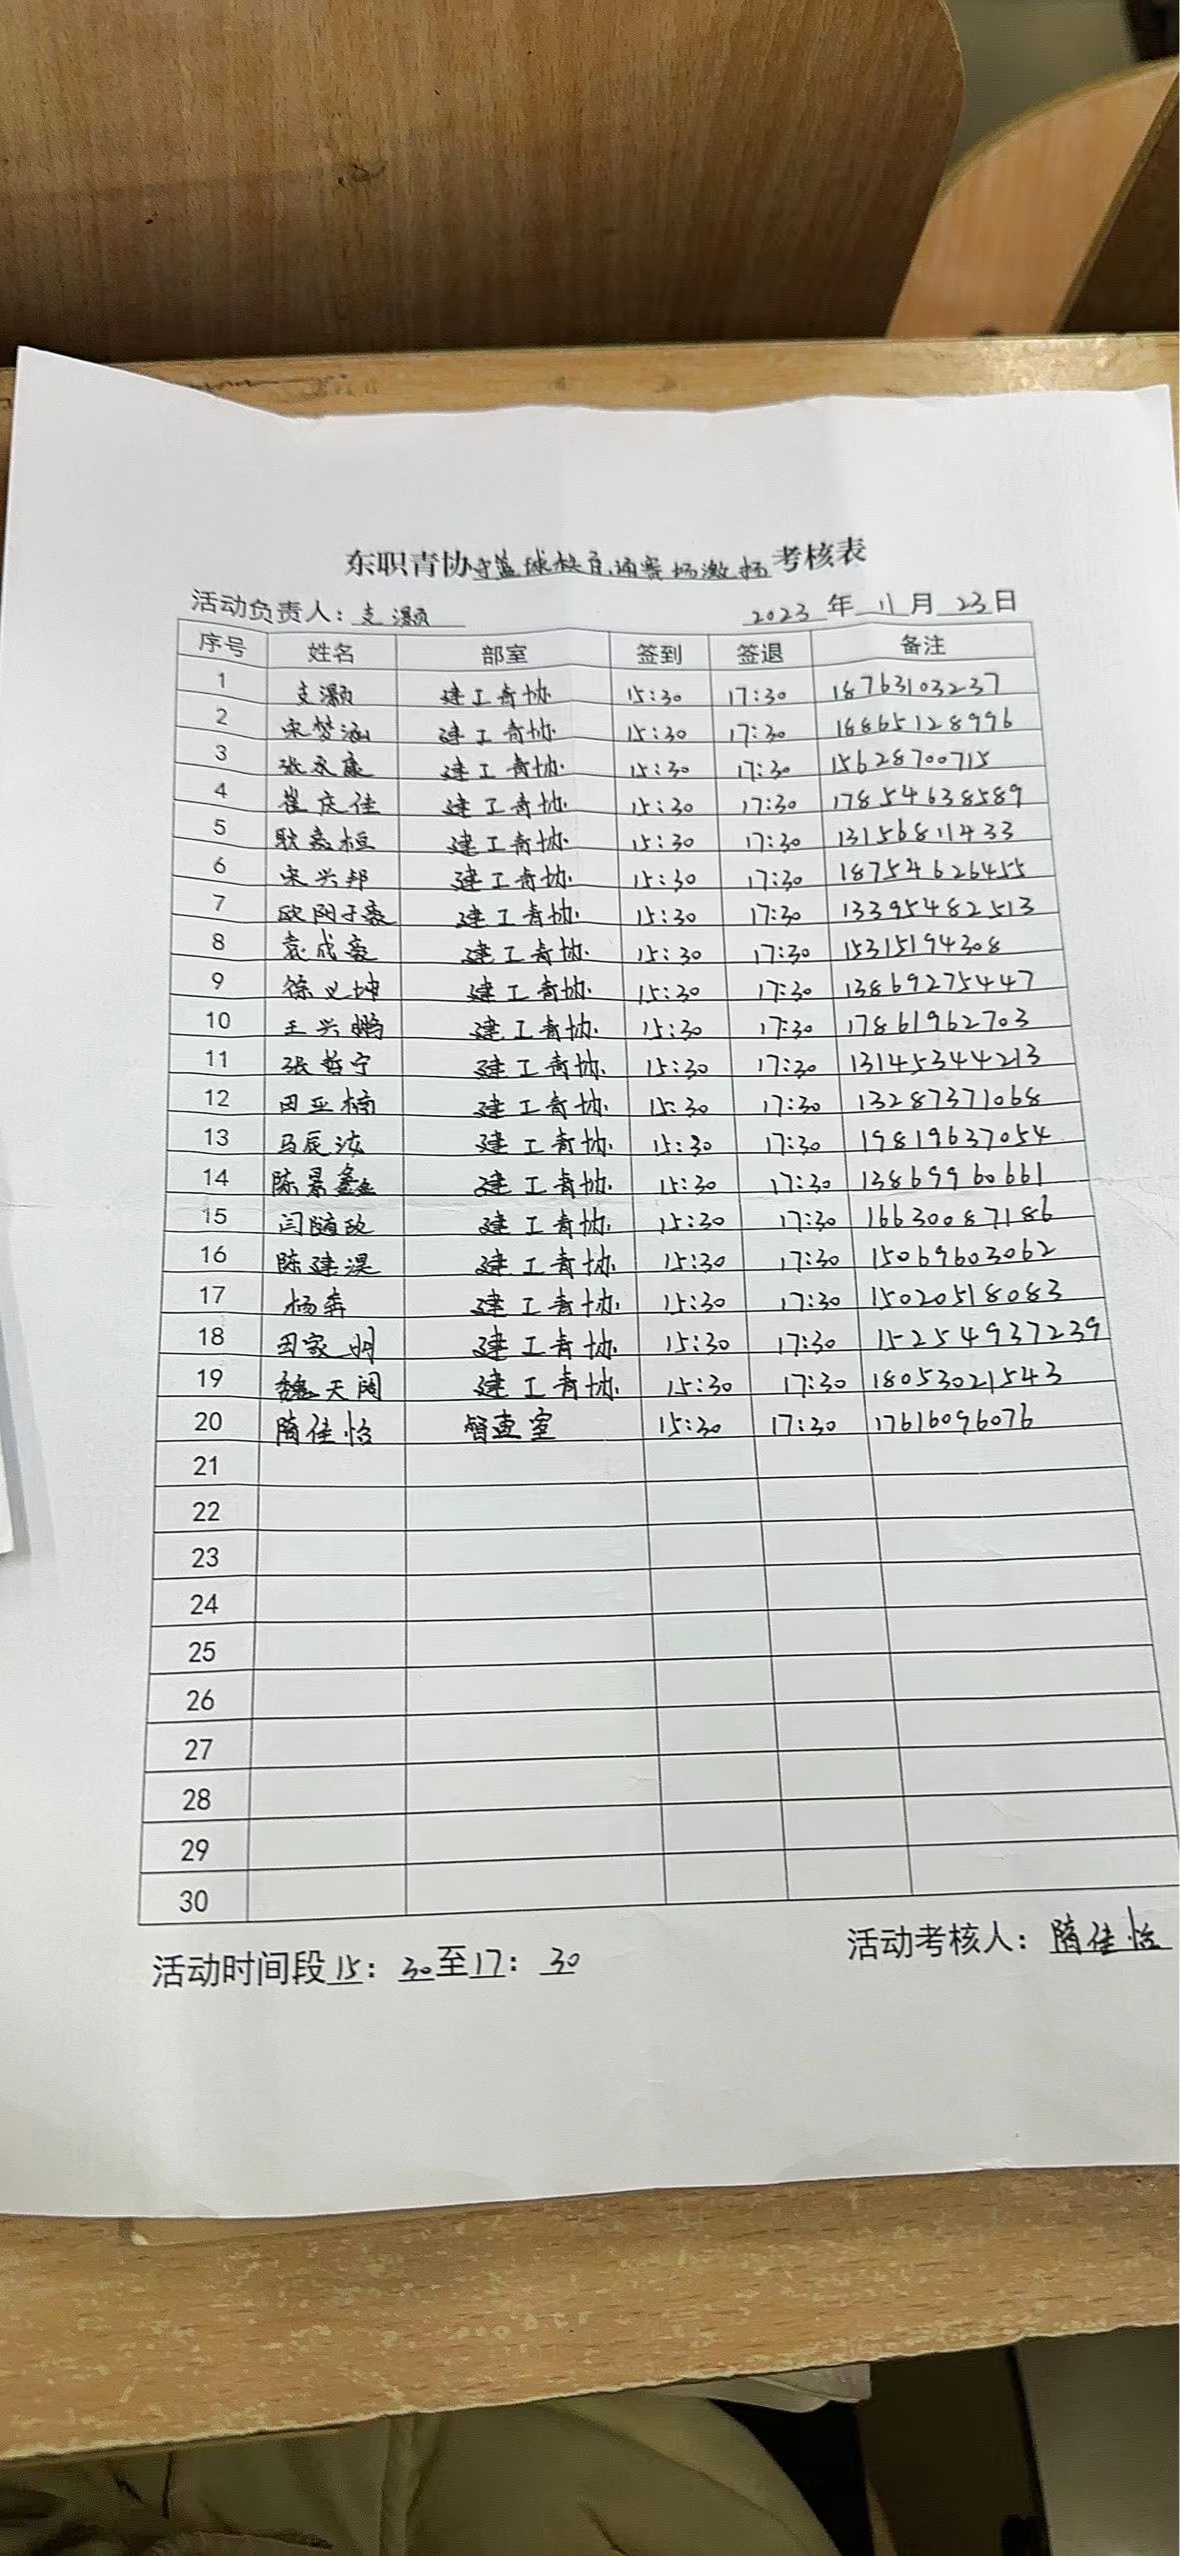 东职青协 篮球 考核表
活动负责人：支灏
2023 年 11 月 23 日
序号 姓名 部室 签到 签退 备注
1 支灏 建工青协 15:30 17:30 18763103237
2 宋梦涵 建工青协 15:30 17:30 18865128996
3 张永康 建工青协 15:30 17:30 15628700715
4 崔庆佳 建工青协 15:30 17:30 17854638589
5 耿嘉桓 建工青协 15:30 17:30 13156811433
6 宋兴邦 建工青协 15:30 17:30 18754626455
7 欧阳子豪 建工青协 15:30 17:30 13395482513
8 袁成豪 建工青协 15:30 17:30 15315194308
9 徐义坤 建工青协 15:30 17:30 13869275447
10 王兴鹏 建工青协 15:30 17:30 17861962703
11 张哲宁 建工青协 15:30 17:30 13145344213
12 田亚楠 建工青协 15:30 17:30 13287371068
13 马辰浤 建工青协 15:30 17:30 19819637054
14 陈景鑫 建工青协 15:30 17:30 13869960661
15 闫随政 建工青协 15:30 17:30 16630087186
16 陈建淏 建工青协 15:30 17:30 15069603062
17 杨奔 建工青协 15:30 17:30 15020518083
18 田家明 建工青协 15:30 17:30 15254937239
19 魏天阔 建工青协 15:30 17:30 18053021543
20 隋佳怡 督查室 15:30 17:30 17616096076
21
22
23
24
25
26
27
28
29
30
活动时间段 15：30至17：30
活动考核人：隋佳怡